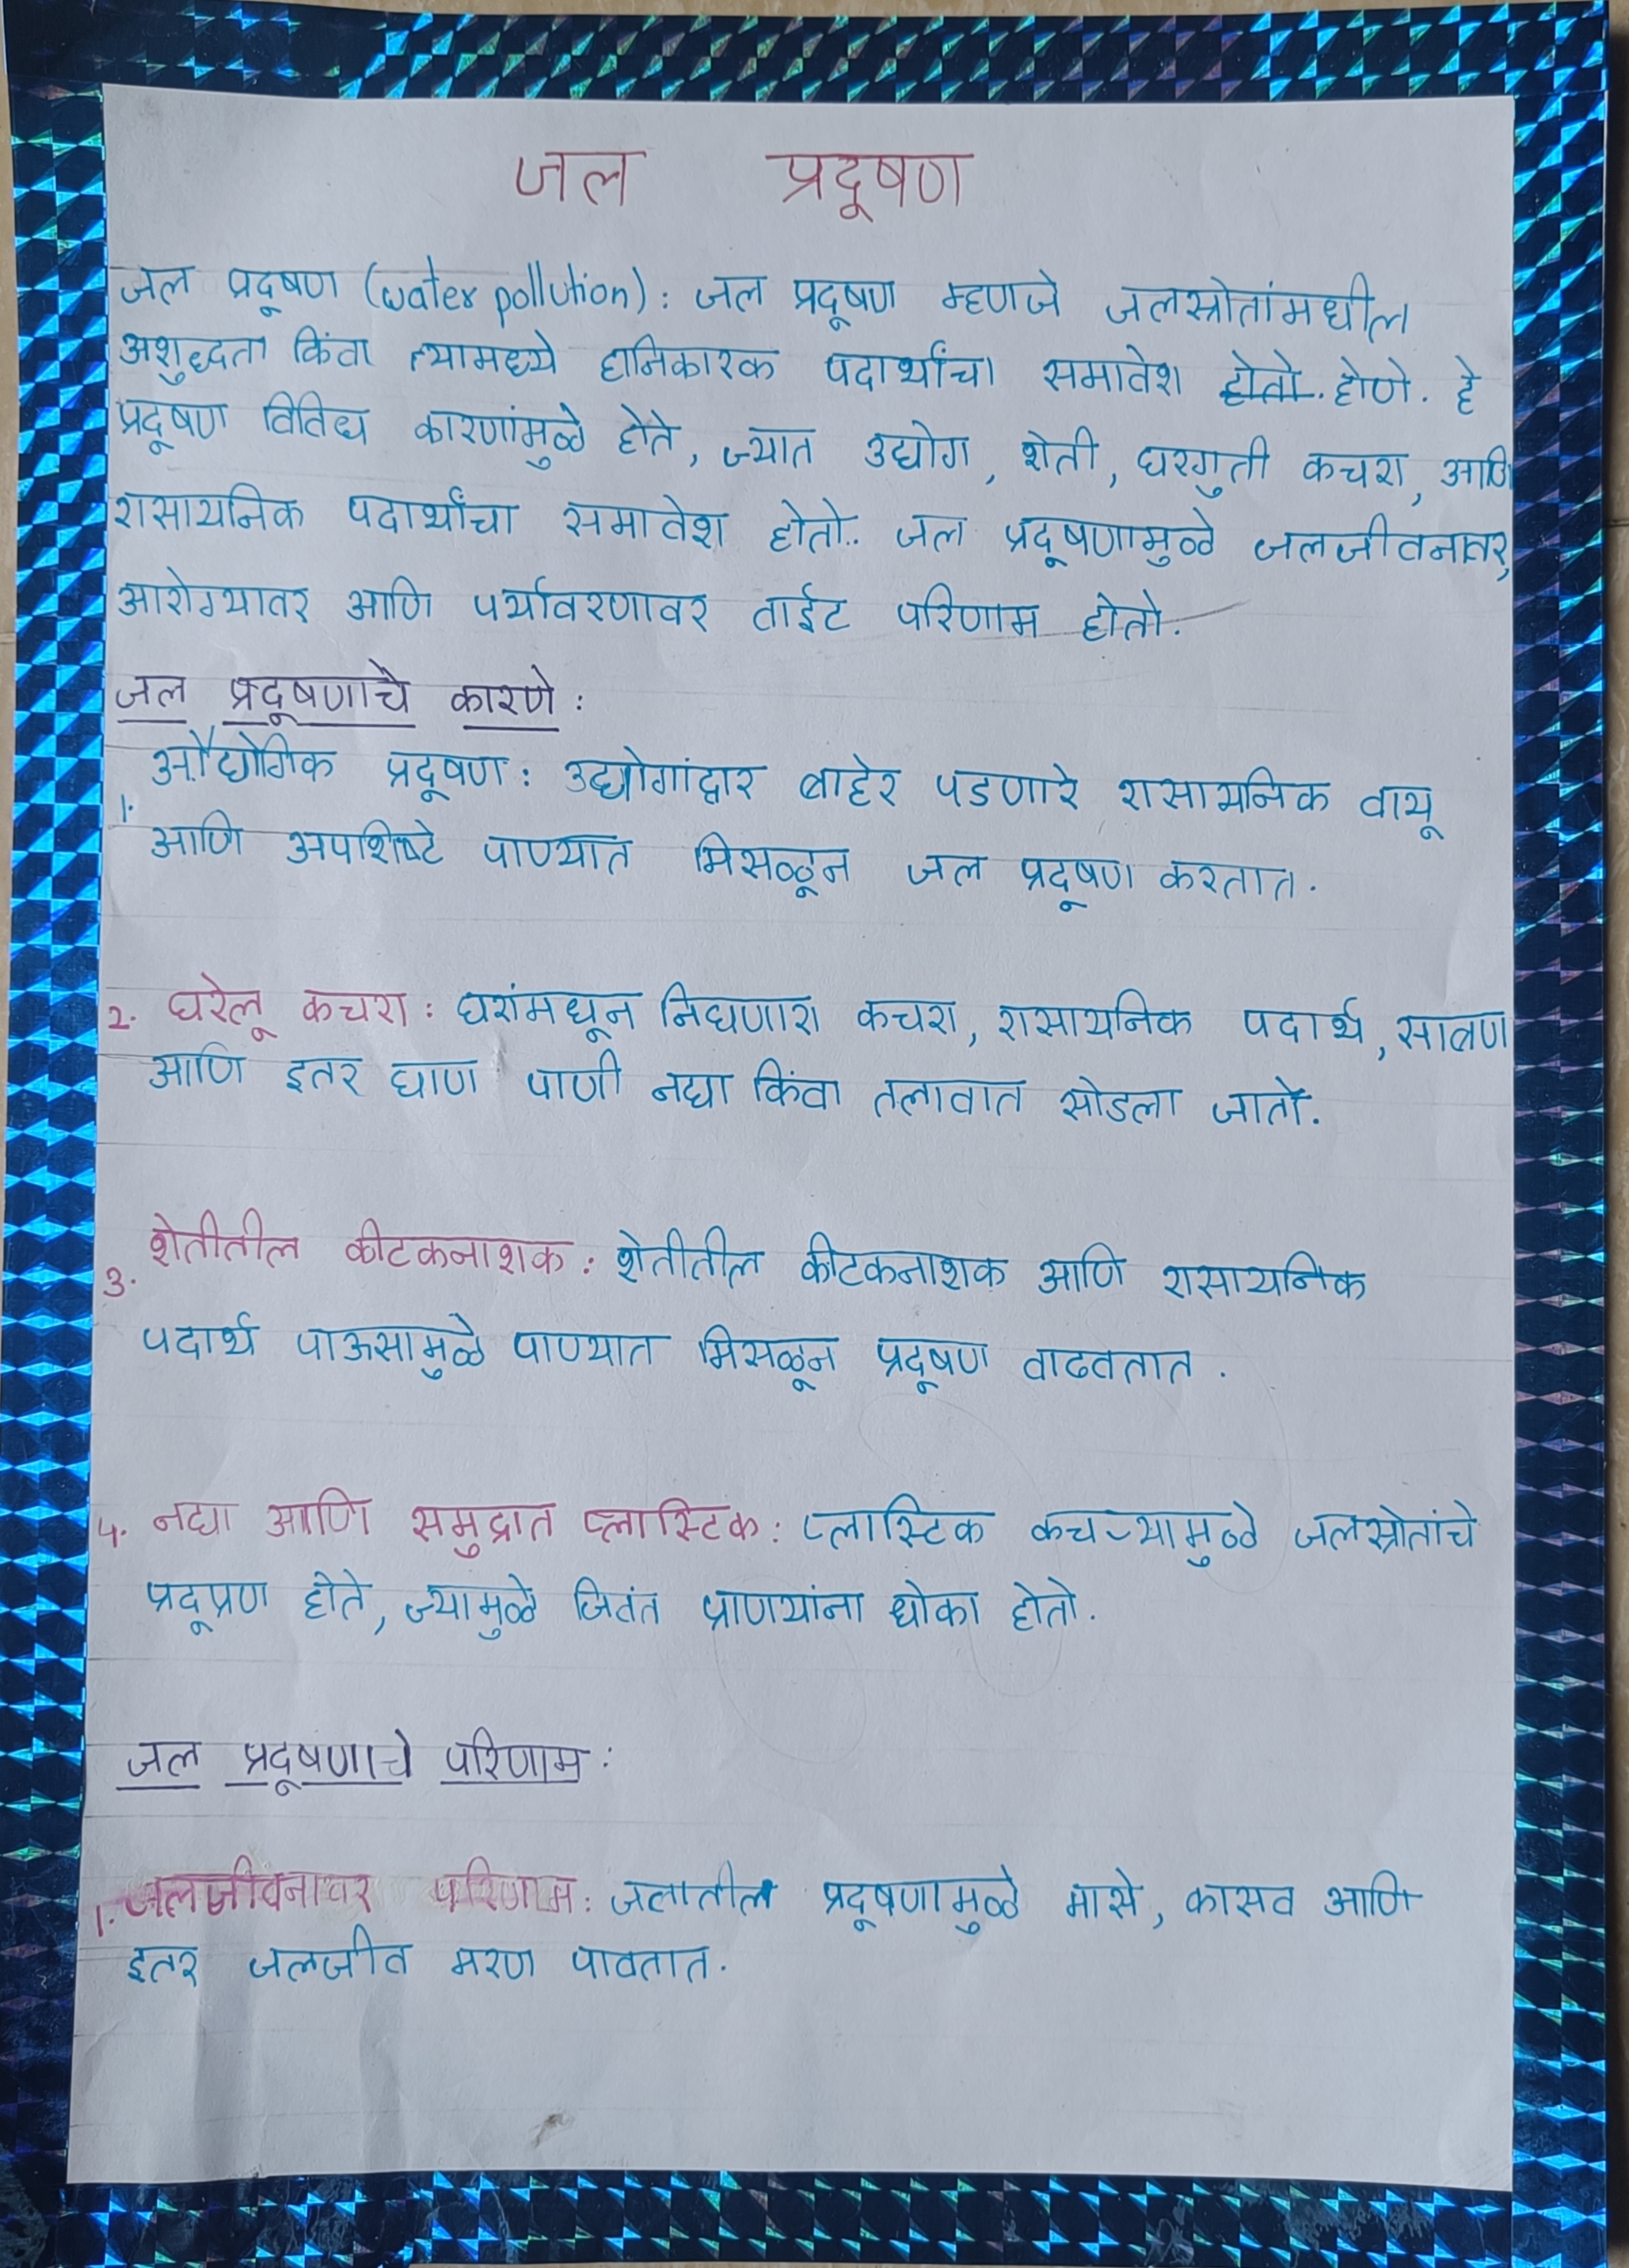 जल प्रदूषण
जल प्रदूषण (water pollution): जल प्रदूषण म्हणजे जलस्रोतांमधील
अशुद्धता किंवा त्यामध्ये हानिकारक पदार्थांचा समावेश होतो. होणे. हे
प्रदूषण विविध कारणांमुळे होते, ज्यात उद्योग, शेती, घरगुती कचरा, आणि
रासायनिक पदार्थांचा समावेश होतो.. जल प्रदूषणामुळे जलजीवनावर,
आरोग्यावर आणि पर्यावरणावर वाईट परिणाम होतो.
जल प्रदूषणाचे कारणे:
1. औद्योगिक प्रदूषण: उद्योगांद्वार बाहेर पडणारे रासायनिक वायू
आणि अपशिष्टे पाण्यात मिसळून जल प्रदूषण करतात.
2. घरेलू कचरा: घरांमधून निघणारा कचरा, रासायनिक पदार्थ, साबण
आणि इतर घाण पाणी नद्या किंवा तलावात सोडला जातो.
3. शेतीतील कीटकनाशक: शेतीतील कीटकनाशक आणि रासायनिक
पदार्थ पाऊसामुळे पाण्यात मिसळून प्रदूषण वाढवतात.
4. नद्या आणि समुद्रात प्लास्टिक: प्लास्टिक कचऱ्यामुळे जलस्रोतांचे
प्रदूप्रण होते, ज्यामुळे जिवंत प्राणयांना धोका होतो.
जल प्रदूषणाचे परिणाम:
1. जलजीवनावर परिणाम: जलातील प्रदूषणामुळे मासे, कासव आणि
इतर जलजीव मरण पावतात.